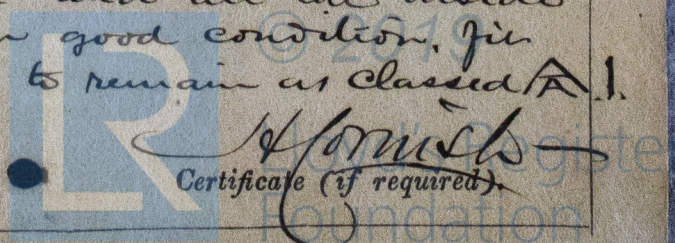 good condition. Fit
to remain as Classed A.1.
H Cornish
Certificate (if required).
© 2019
LR
Lloyd's Register
Foundation